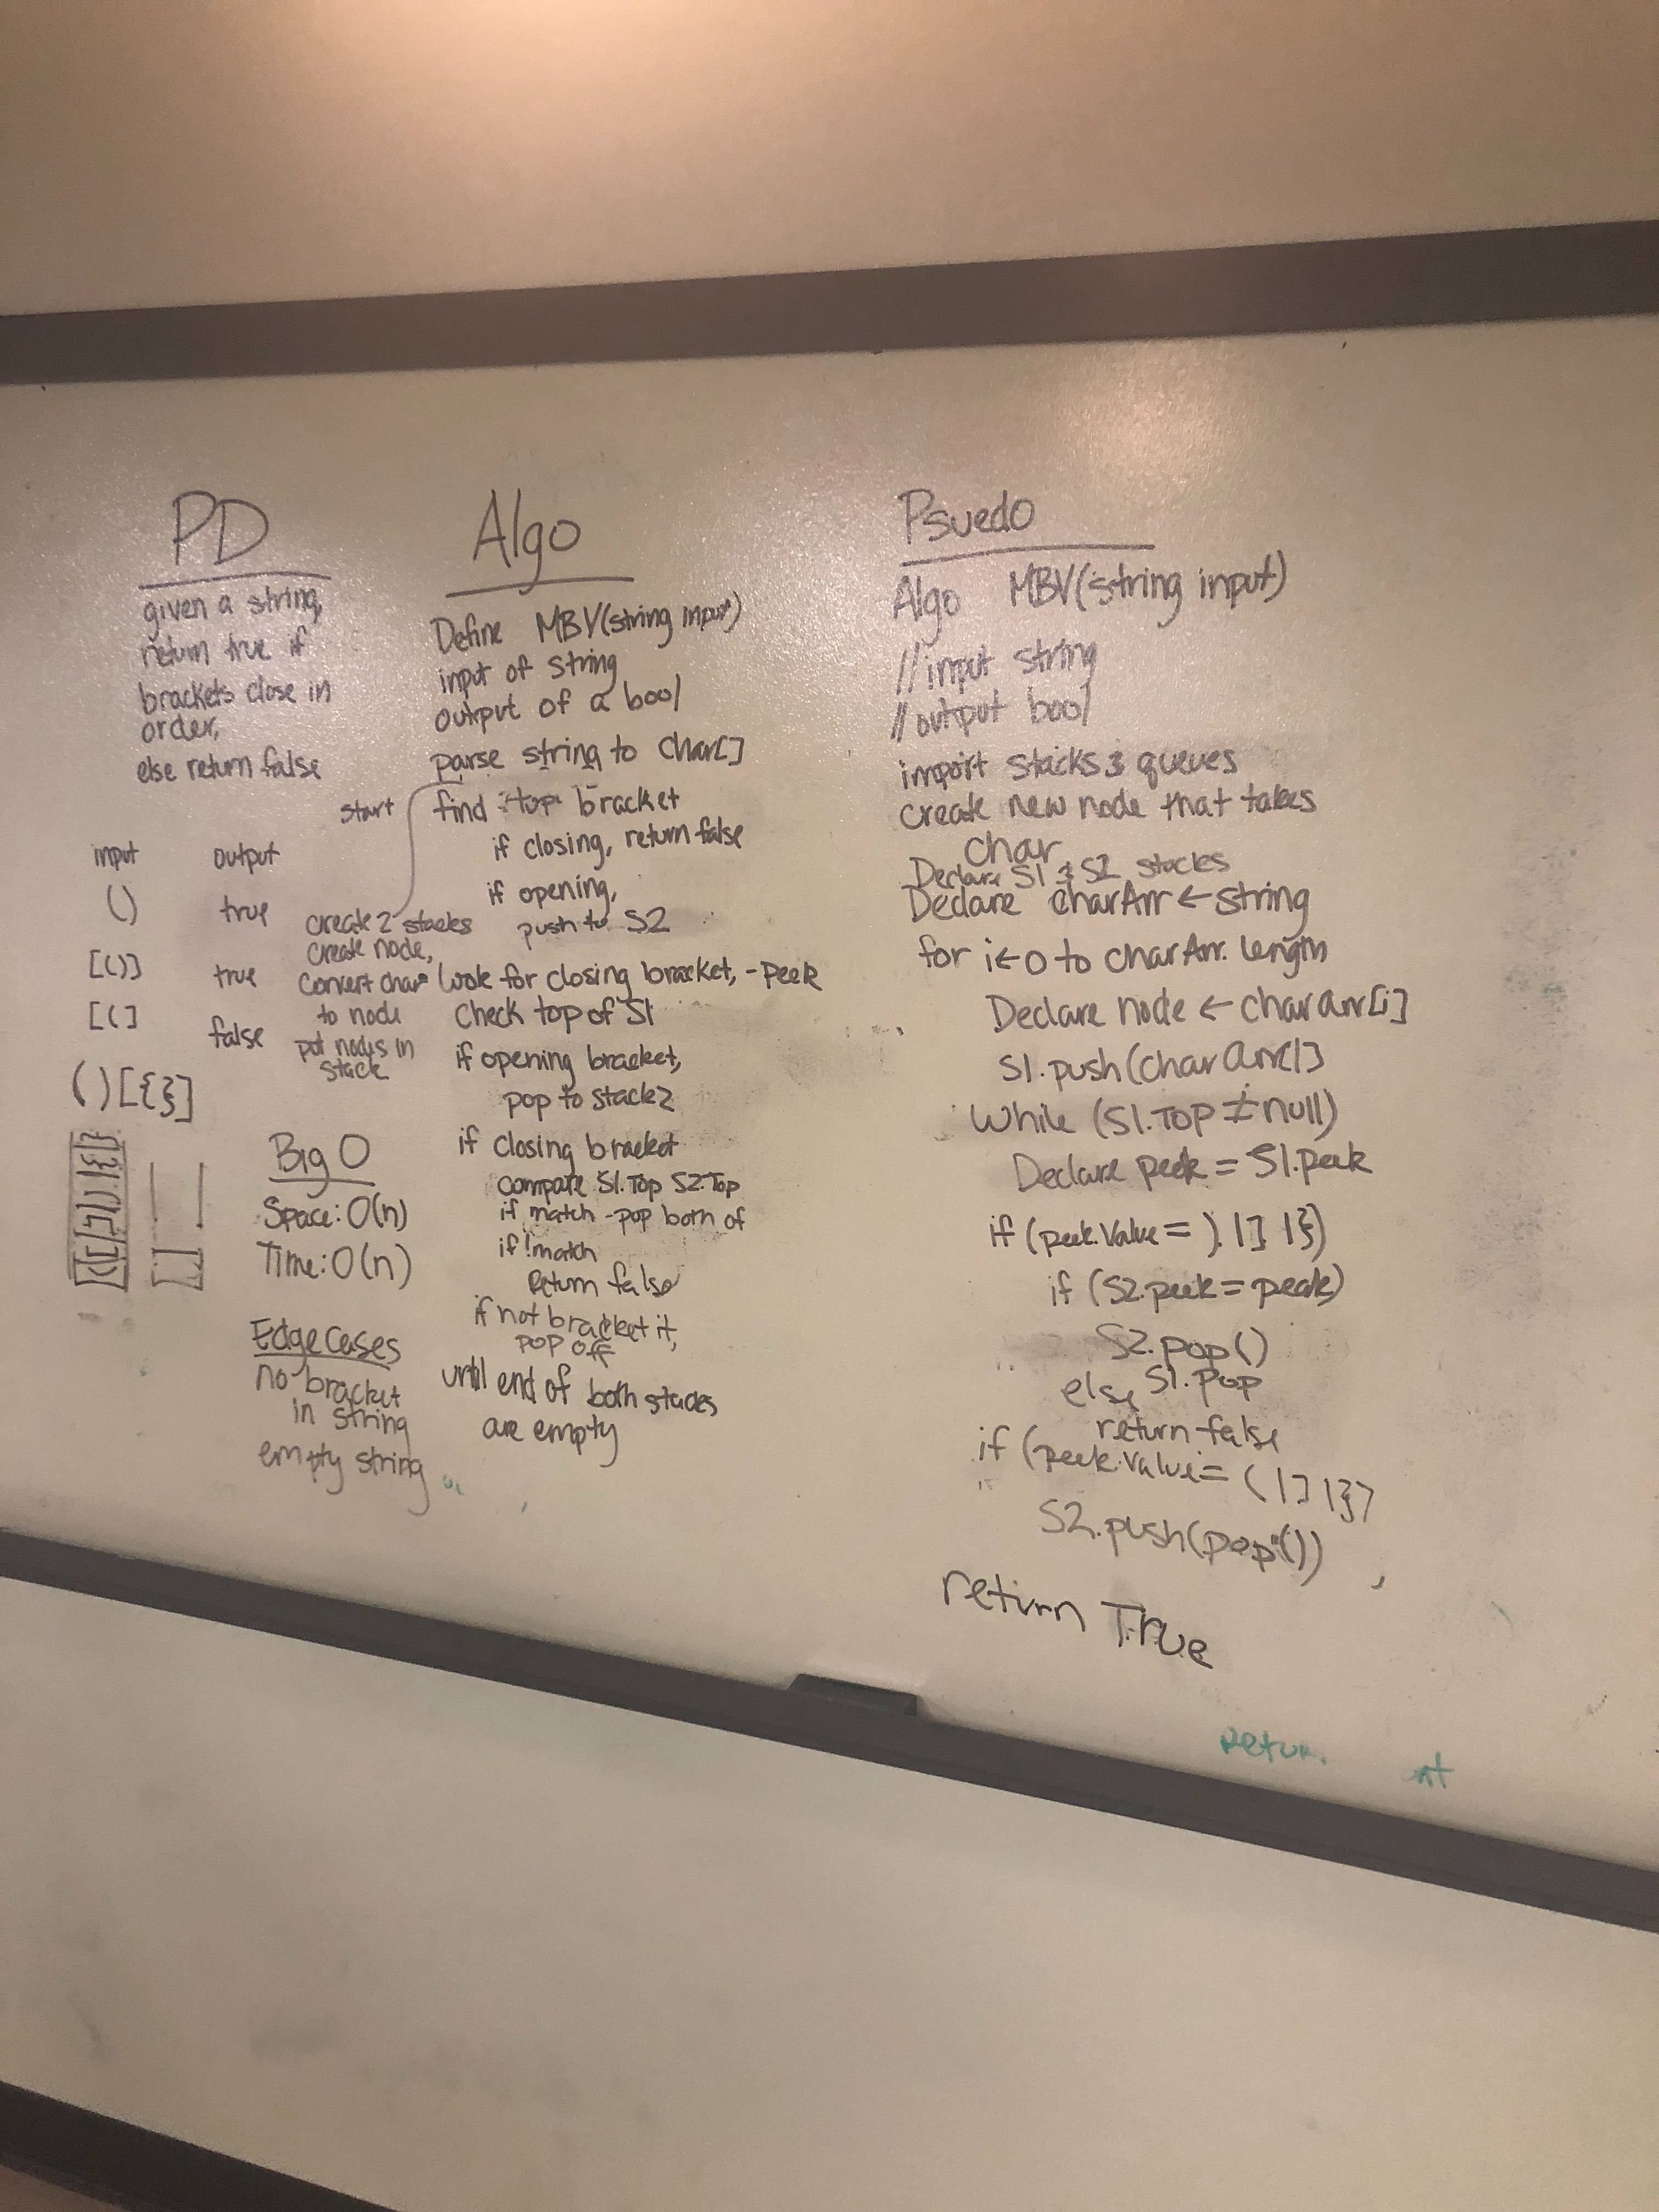 PD
given a string,
return true if
brackets close in
order,
else return false
input output
() true
[()] true
[(] false
()[{}]
Big O
Space: O(n)
Time: O(n)
Edge Cases
no bracket
in string
empty string
Algo
Define MBV(string input)
input of string
output of a bool
parse string to Char[]
start
create 2 stacks
create node,
convert char
to node
put nodes in
stack
find top bracket
if closing, return false
if opening,
push to S2
look for closing bracket, - peek
Check top of S1
if opening bracket,
pop to stack2
if closing bracket
compare S1.Top S2.Top
if match - pop both of
if !match
Return false
if not bracket it,
pop off
until end of both stacks
are empty
Psuedo
Algo MBV(string input)
// input string
// output bool
import stacks & queues
create new node that takes
char
Declare S1 & S2 stacks
Declare charArr ← string
for i ← 0 to charArr. length
Declare node ← charArr[i]
S1.push(charArr[]
While (S1.TOP ≠ null)
Declare peek = S1.peek
if (peek.Value = ) | ] | })
if (S2.peek = peak)
S2.pop()
S1.pop
else
return false
if (peek.value = ( | ] | })
S2.push(pop())
return True
Retur
nt